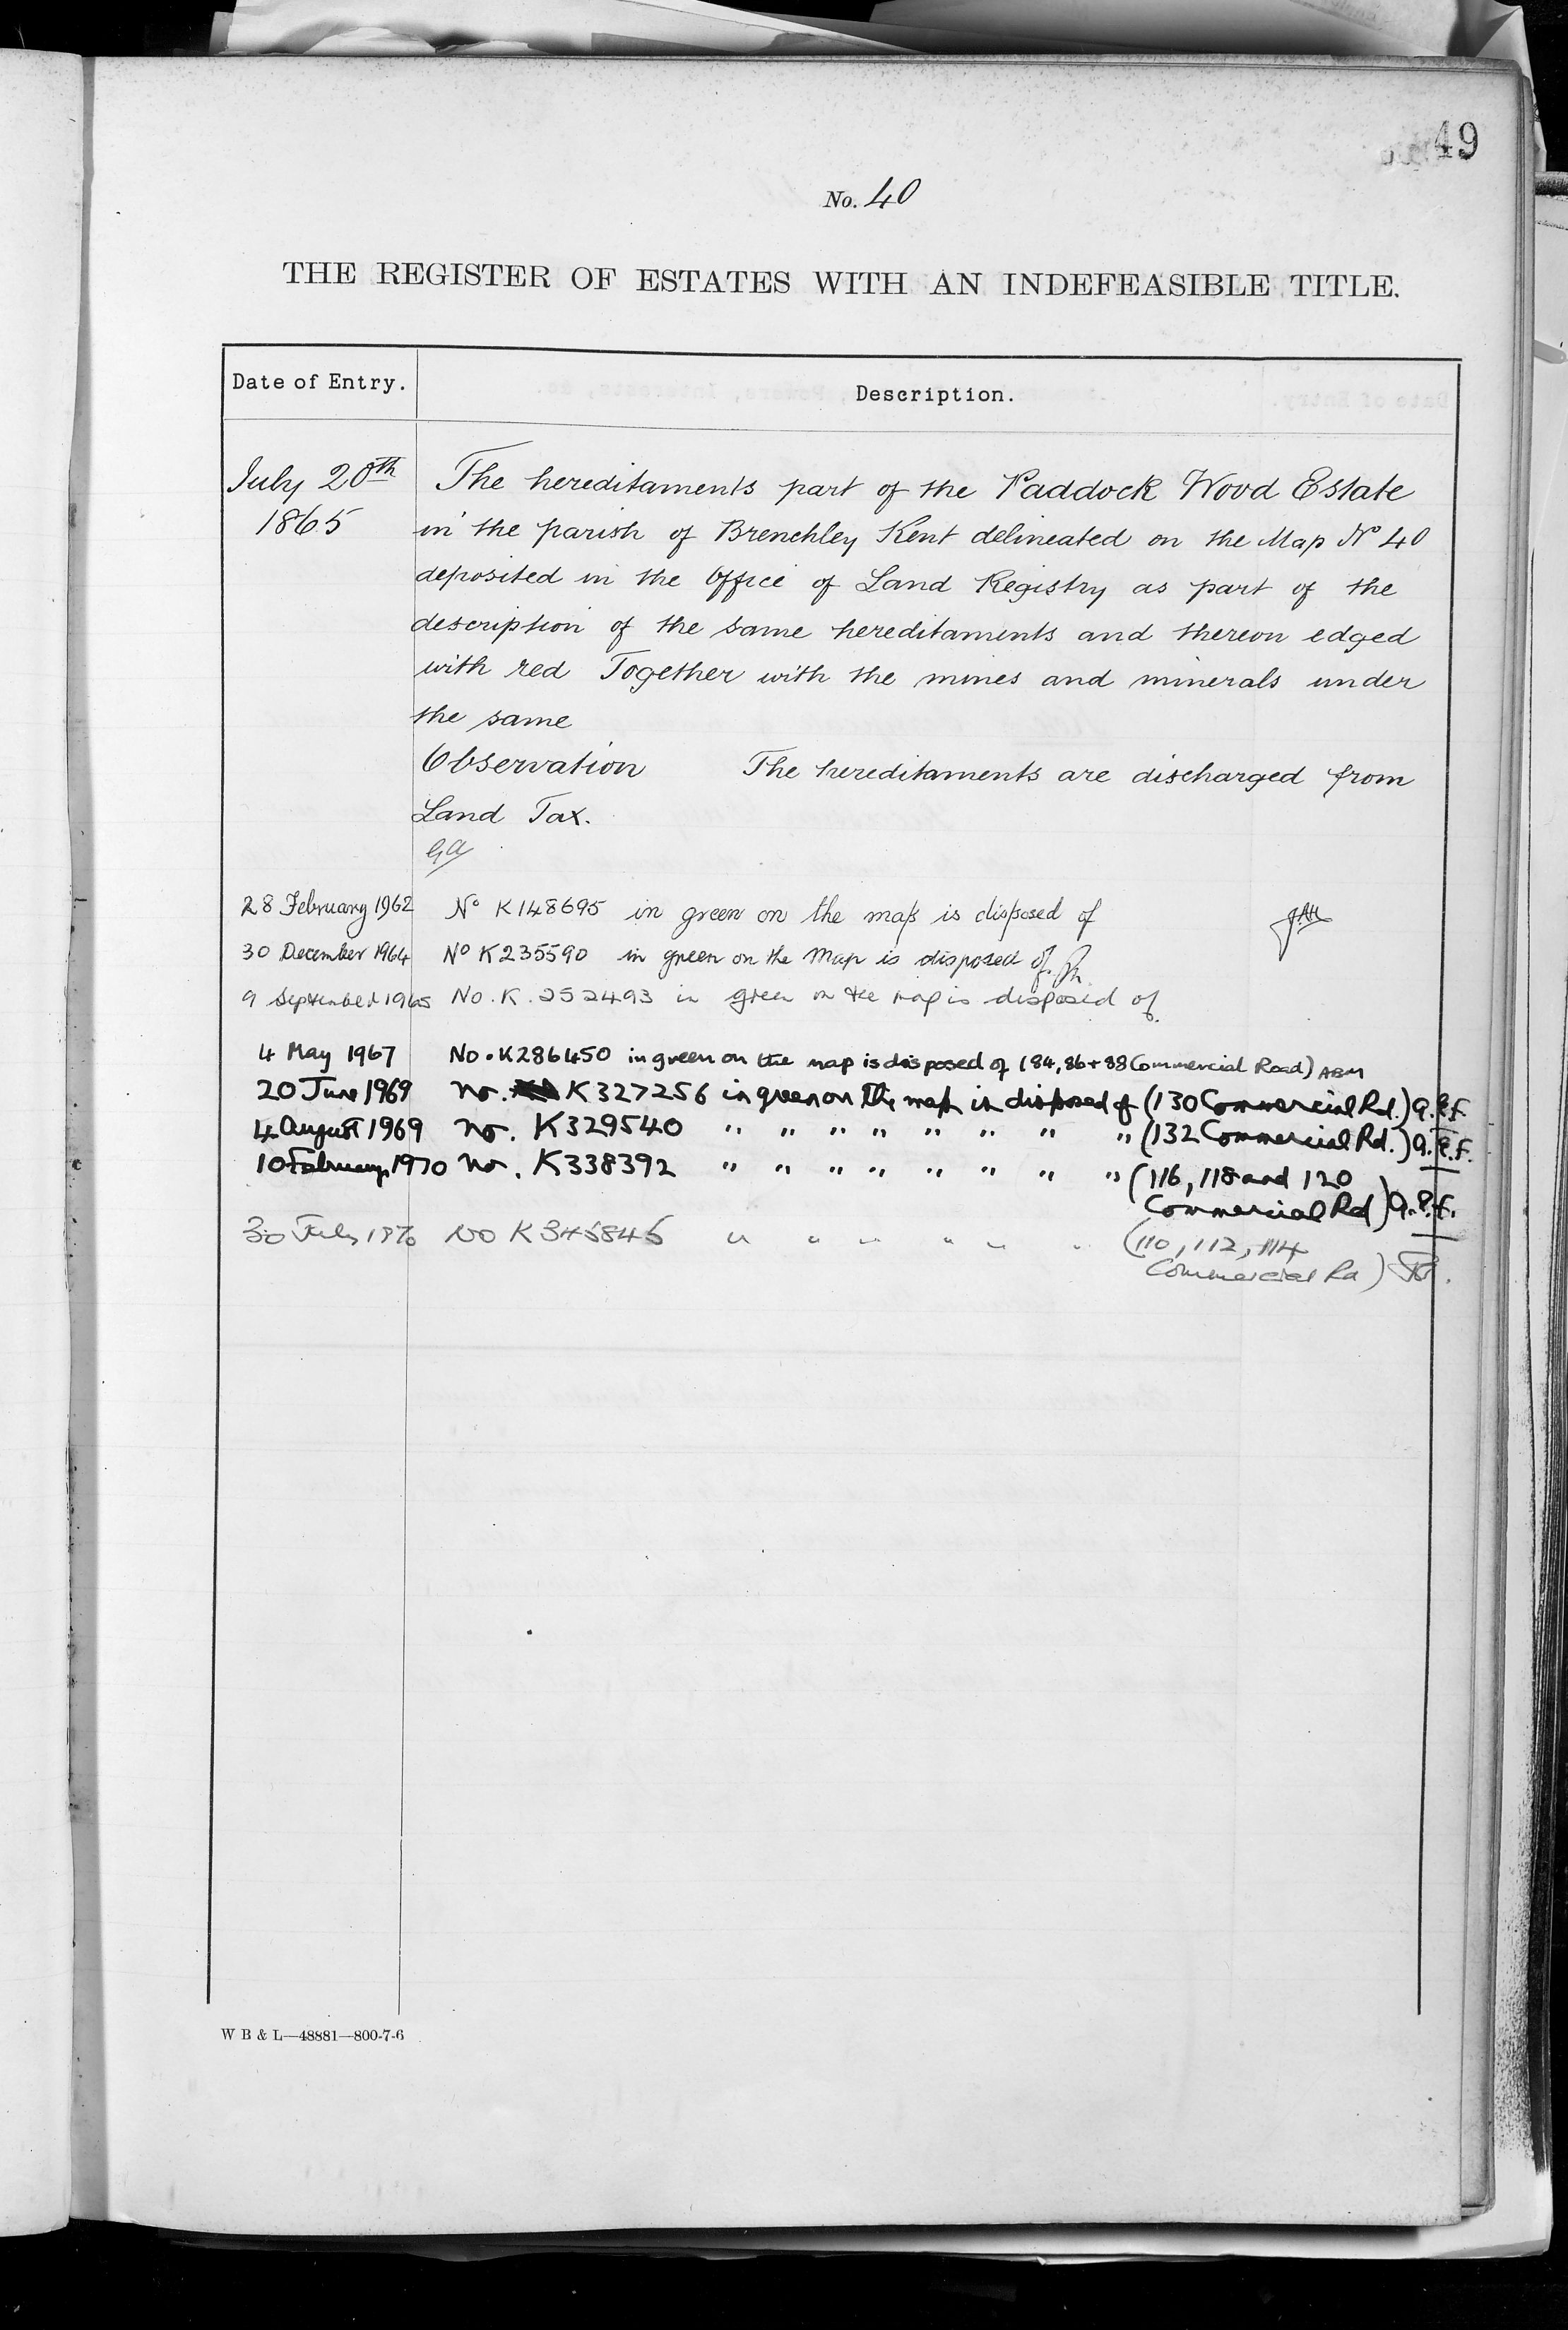 49
No. 40
THE REGISTER OF ESTATES WITH AN INDEFEASIBLE TITLE.
Date of Entry. Description.
July 20th The hereditaments part of the Paddock Wood Estate
1865 in the parish of Brenchley Kent delineated on the Map No 40
deposited in the Office of Land Registry as part of the
description of the same hereditaments and thereon edged
with red Together with the mines and minerals under
the same
Observation The hereditaments are discharged from
Land Tax.
28 February 1962 No K148695 in green on the map is disposed of
30 December 1964 No K235590 in green on the Map is disposed of.
9 September 1965 No. K. 252493 in green on the map is disposed of.
4 May 1967 No. K286450 in green on the map is disposed of (84, 86 + 88 Commercial Road) ABM
20 June 1969 No. K327256 in green on the map is disposed of (130 Commercial Rd.) a.e.f.
4 August 1969 No. K329540 " " " " " " " " (132 Commercial Rd.) a.e.f.
10 February 1970 No. K338392 " " " " " " " " (116, 118 and 120
Commercial Rd) a.e.f.
30 July 1970 No K345845 " " " " " " (110, 112, 114
Commercial Rd)
W B & L—48881—800-7-6